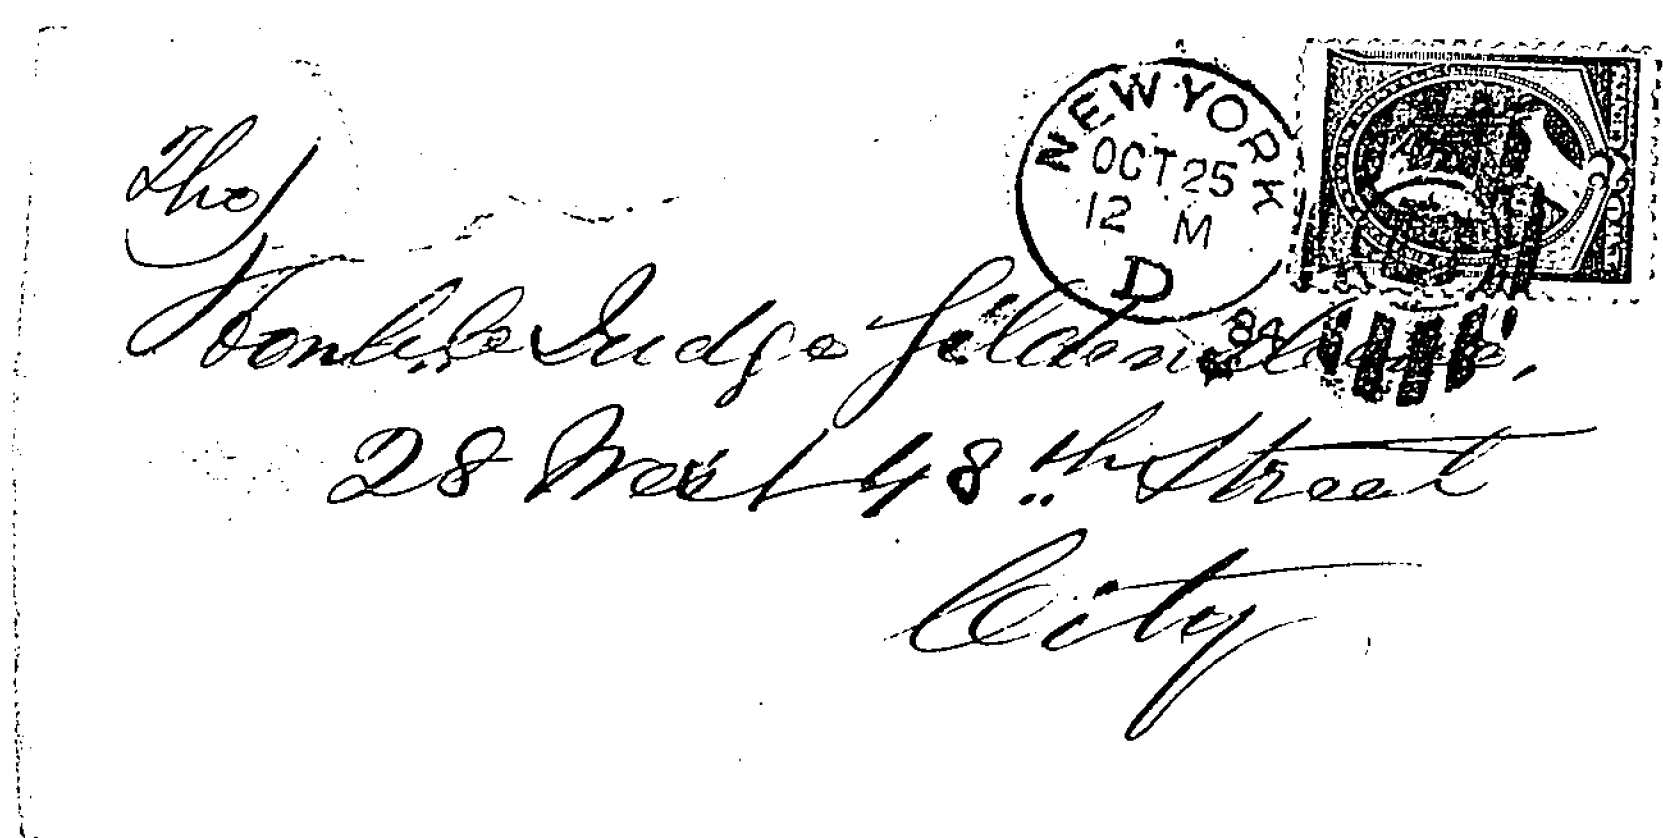 NEW YORK
OCT 25
12 M
D
84
The
Honble Judge Gildersleeve,
28 West 48th Street
City